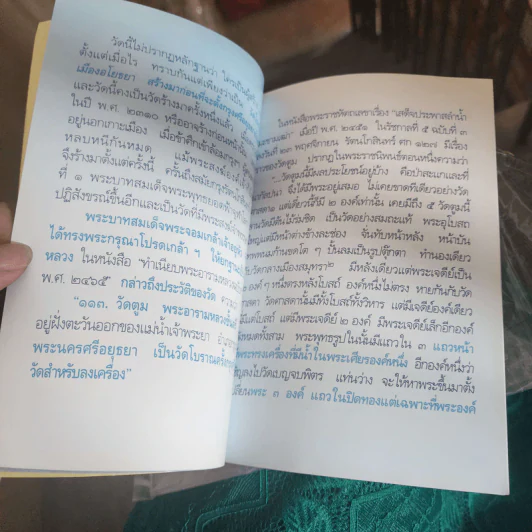 วัดนี้ไม่ปรากฏหลักฐานว่า ใครเป็นผู้
ตั้งแต่เมื่อไร ทราบกันแต่เพียงว่าเป็น
เมืองอโยธยา สร้างมาก่อนที่จะตั้งกรุงศรี
และวัดนี้คงเป็นวัดร้างมาครั้งหนึ่งแล้ว เมื่อ
ในปี พ.ศ. ๒๓๑๐ หรืออาจร้างก่อนหน้า
อยู่นอกเกาะเมือง เมื่อข้าศึกเข้าล้อมกรุง
หลบหนีกันหมด แม้พระสงฆ์
จึงร้างมาตั้งแต่ครั้งนี้ ครั้นถึงสมัยกรุงรัตน
ที่ ๑ พระบาทสมเด็จพระพุทธยอดฟ้า
ปฏิสังขรณ์ขึ้นอีกและเป็นวัดที่มีพระสงฆ์
พระบาทสมเด็จพระจอมเกล้าเจ้าอยู่
ได้ทรงพระกรุณาโปรดเกล้า ฯ ให้ยกฐานะ
หลวง ในหนังสือ "ทำเนียบพระอารามหลวง
พ.ศ. ๒๔๖๕" กล่าวถึงประวัติของวัด
"๑๑๓. วัดตูม พระอารามหลวงชั้น
อยู่ฝั่งตะวันออกของแม่น้ำเจ้าพระยา
พระนครศรีอยุธยา เป็นวัดโบราณ
วัดสำหรับลงเครื่อง"
ในหนังสือพระราชหัตถเลขาเรื่อง "เสด็จประพาสลำน้ำ
เมื่อปี พ.ศ. ๒๔๕๑ ในรัชกาลที่ ๕ ฉบับที่ ๓
วันที่ ๒๓ พฤศจิกายน รัตนโกสินทร์ ศก ๑๒๗ มีเรื่อง
ของวัดตูม ปรากฏในพระราชนิพนธ์ตอนหนึ่งความว่า
วัดตูมนี้มีผลประโยชน์อยู่บ้าง คือป่าสะแกและที่
จึงได้มีพระอยู่เสมอ ไม่เคยขาดทีเดียวอย่างวัด
แต่เดี๋ยวนี้ก็มี ๒ องค์เท่านั้น เคยมีถึง ๕ วัดตูมนี้
มีต้นไม้ร่มชิด เป็นวัดอย่างสมถะแท้ พระอุโบสถ
มีหน้าต่างข้างละช่อง จั่วทับหน้าหลัง หน้าบัน
พรหมก้านขดโต ๆ ปั้นลมเป็นรูปตุ๊กตา ทำนองเดียว
วัดกลางเมืองสมุทรา" มีหลังเดียวแต่พระเจดีย์เป็น
องค์ ๆ หนึ่งตรงหลังโบสถ์ องค์หนึ่งไม่ตรง หายกันกับวัด
วัดศาสดานั้นมีทั้งโบสถ์ทั้งวิหาร แต่มีเจดีย์องค์เดียว
มีแต่โบสถ์ แต่มีพระเจดีย์ ๒ องค์ มีพระเจดีย์เล็กอีกองค์
ทั้งสาม พระพุทธรูปในนั้นมีแถวใน ๓ แถวหน้า
พระทรงเครื่องที่มีน้ำในพระเศียรองค์หนึ่ง อีกองค์หนึ่งว่า
ลงไปวัดเบญจบพิตร แท่นว่าง จะให้หาพระขึ้นมาตั้ง
พระ ๓ องค์ แถวในปิดทองแต่เฉพาะที่พระองค์